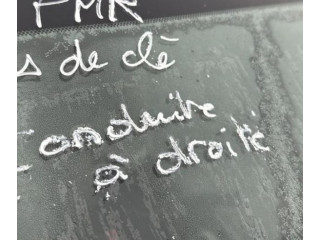 PMR
de clé
conduite
à droite